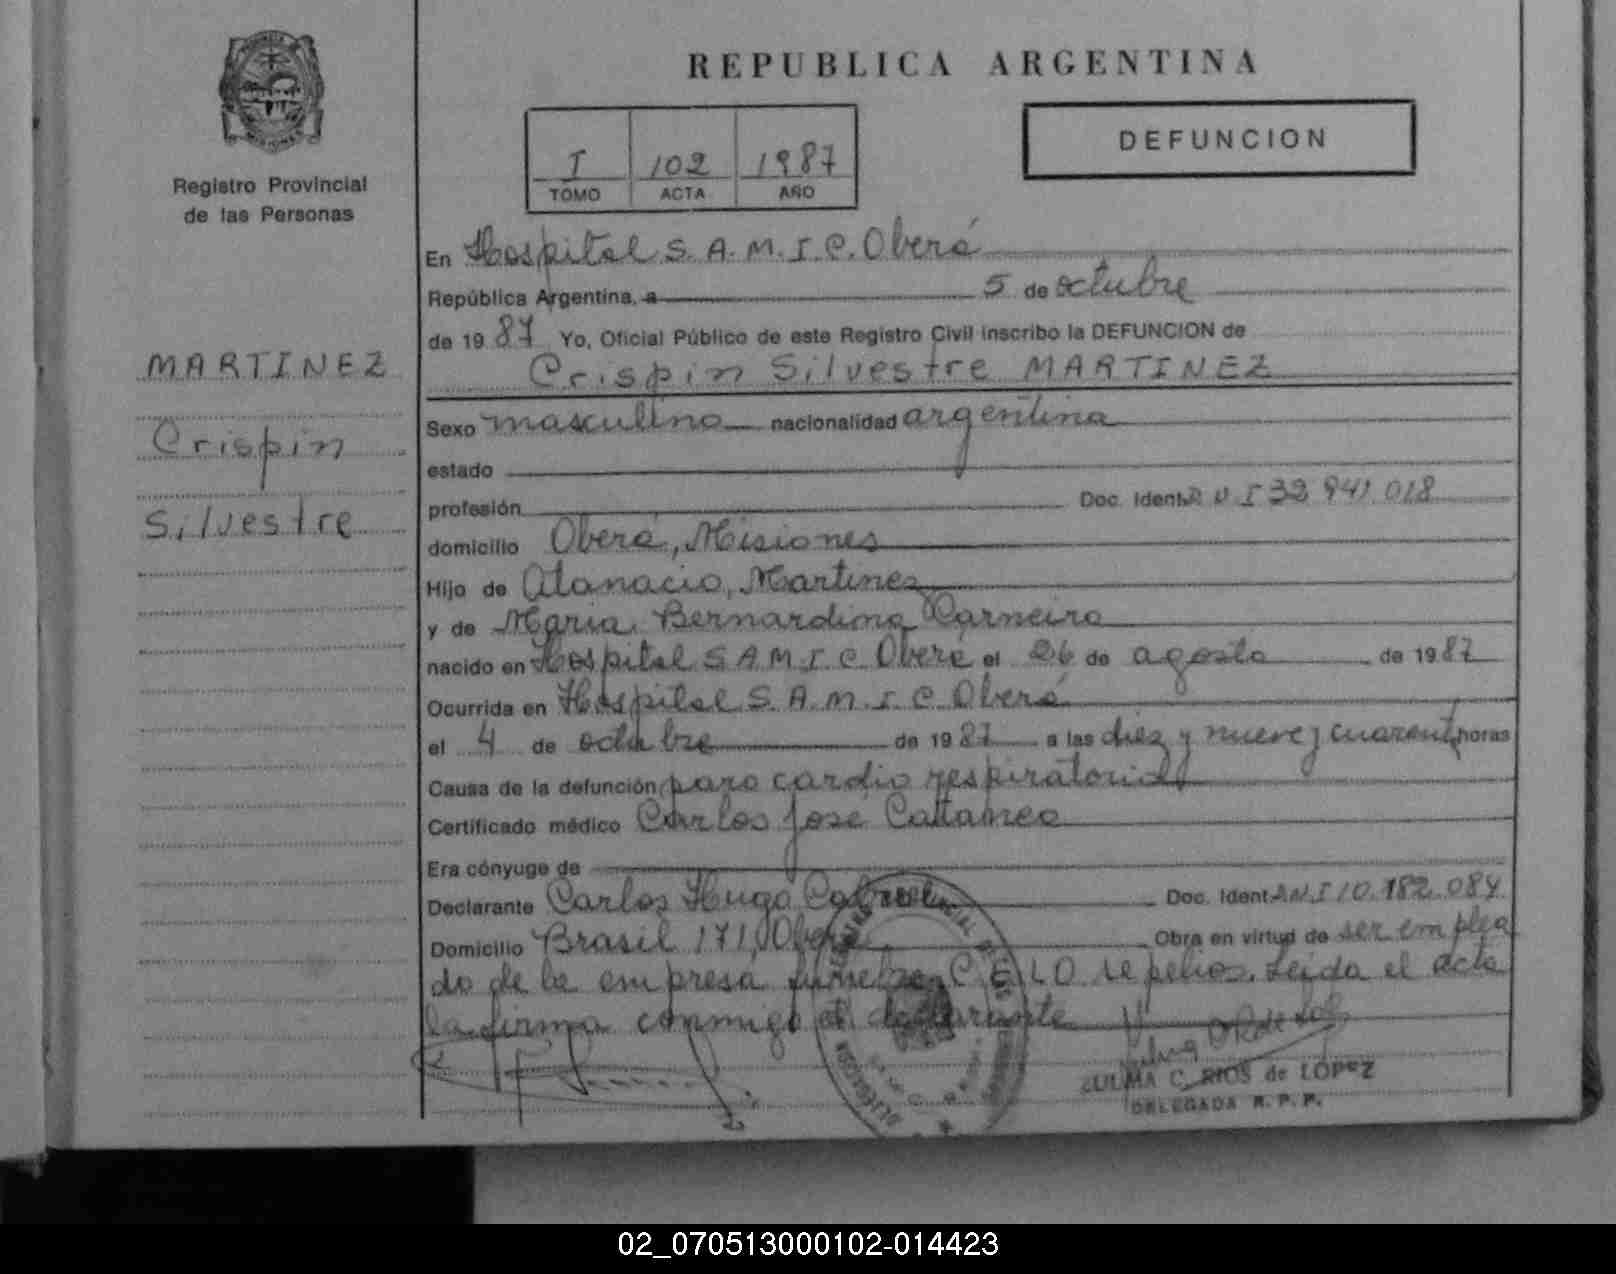 REPUBLICA ARGENTINA
DEFUNCION
I 102 1987
TOMO ACTA AÑO
Registro Provincial
de las Personas
MARTINEZ
Crispin
Silvestre
En Hospital S.A.M.I.C. Oberá
República Argentina, a 5 de octubre
de 1987 Yo, Oficial Público de este Registro Civil inscribo la DEFUNCION de
Crispin Silvestre MARTINEZ
Sexo masculino nacionalidad argentina
estado
profesión Doc. Ident. D N I 32 941 018
domicilio Oberá, Misiones
Hijo de Atanacio, Martinez
y de Maria Bernardina Carneiro
nacido en Hospital S A M I C Oberá el 26 de agosto de 1987
Ocurrida en Hospital S.A.M.I.C Oberá
el 4 de octubre de 1987 a las diez y nueve y cuarenta horas
Causa de la defunción paro cardio respiratorio
Certificado médico Carlos José Cattaneo
Era cónyuge de
Declarante Carlos Hugo Doc. Ident. D.N.I 10.182.084
Domicilio Brasil 171, Oberá Obra en virtud de ser emplea
do de la empresa funebre C.E.L.O. sepelios. Leida el acta
la firma conmigo el declarante
ZULMA C. RIOS de LOPEZ
DELEGADA R. P. P.
02_070513000102-014423